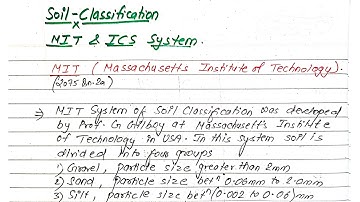 Soil-Classification
MIT & ICS System.
MIT (Massachusetts Institute of Technology).
⇒ MIT System of Soil Classification was developed
by Prof. G Gilboy at Massachusetts Institute
of Technology in USA. In this system soil is
divided into four groups
1) Gravel, particle size greater than 2mm
2) Sand, particle size betn 0.06mm to 2.0mm
3) Silt, particle size betn (0.002 to 0.06) mm